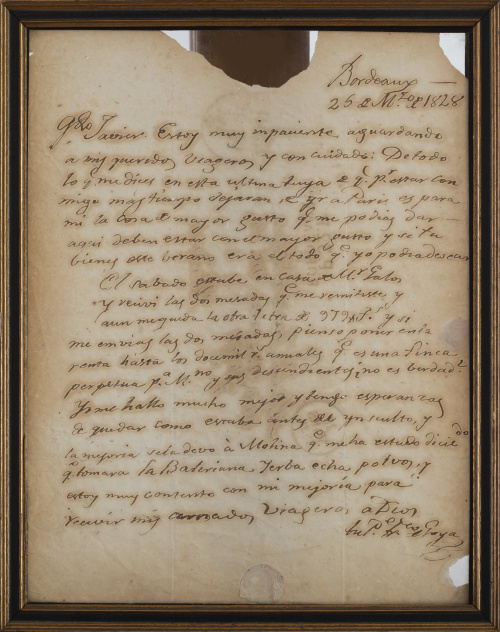 Bordeaux —
26 de M.zo de 1828
q.do Javier. Estoy muy inpaciente aguardando
a mis queridos Viageros y con cuidado: De todo
lo q. me dices en esta ultima tuya de q.e p.r estar con
migo mas tiempo dejaran de yr a Paris es para
mi la cosa de mayor gusto q.e me podias dar —
aqui deben estar con el mayor gusto y si tu
bienes este berano era el todo q.e yo podia desear
El sabado estube en casa de M.r Galos
y recivi las dos mesadas q.e me remitiste y
aun me queda la otra letra de 979 f.s y si
me envias las dos mesadas, pienso poner en la
renta hasta los docemil r.s anuales q.e es una finca
perpetua p.a M.no y sus descendientes ¿no es berdad?
Yo me hallo mucho mejor y tengo esperanzas
de quedar como estaba antes del ynsulto, y
la mejoria se la devo à Molina q.e me ha estado dicien do
q.e tomara la Baleriana Yerba echa polvos, y
estoy muy contento con mi mejoria para
recivir mis amados Viageros a Dios
tu P.e Fr.co Goya